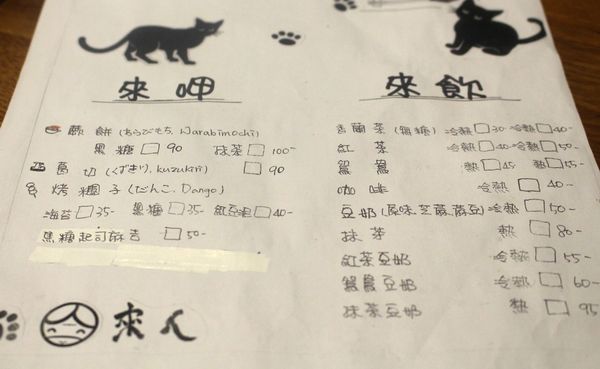 來呷
蕨餅(わらびもち, Warabimochi)
黑糖□90 抹茶□100-
葛切(くずきり, kuzukiri) □90
烤糰子(だんこ, Dango)
海苔□35- 黑糖□35- 紅豆泥□40-
焦糖起司麻吉 □50-
來人
來飲
香蘭茶(無糖) 冷熱□30- 冷熱□40-
紅茶 冷熱□40- 冷熱□50-
鴛鴦 熱□45 熱□55-
咖啡 冷熱□40-
豆奶(原味.芝麻.蕎豆) 冷熱□50-
抹茶 熱□80-
紅茶豆奶 冷熱□55-
鴛鴦豆奶 冷熱□60-
抹茶豆奶 熱□95